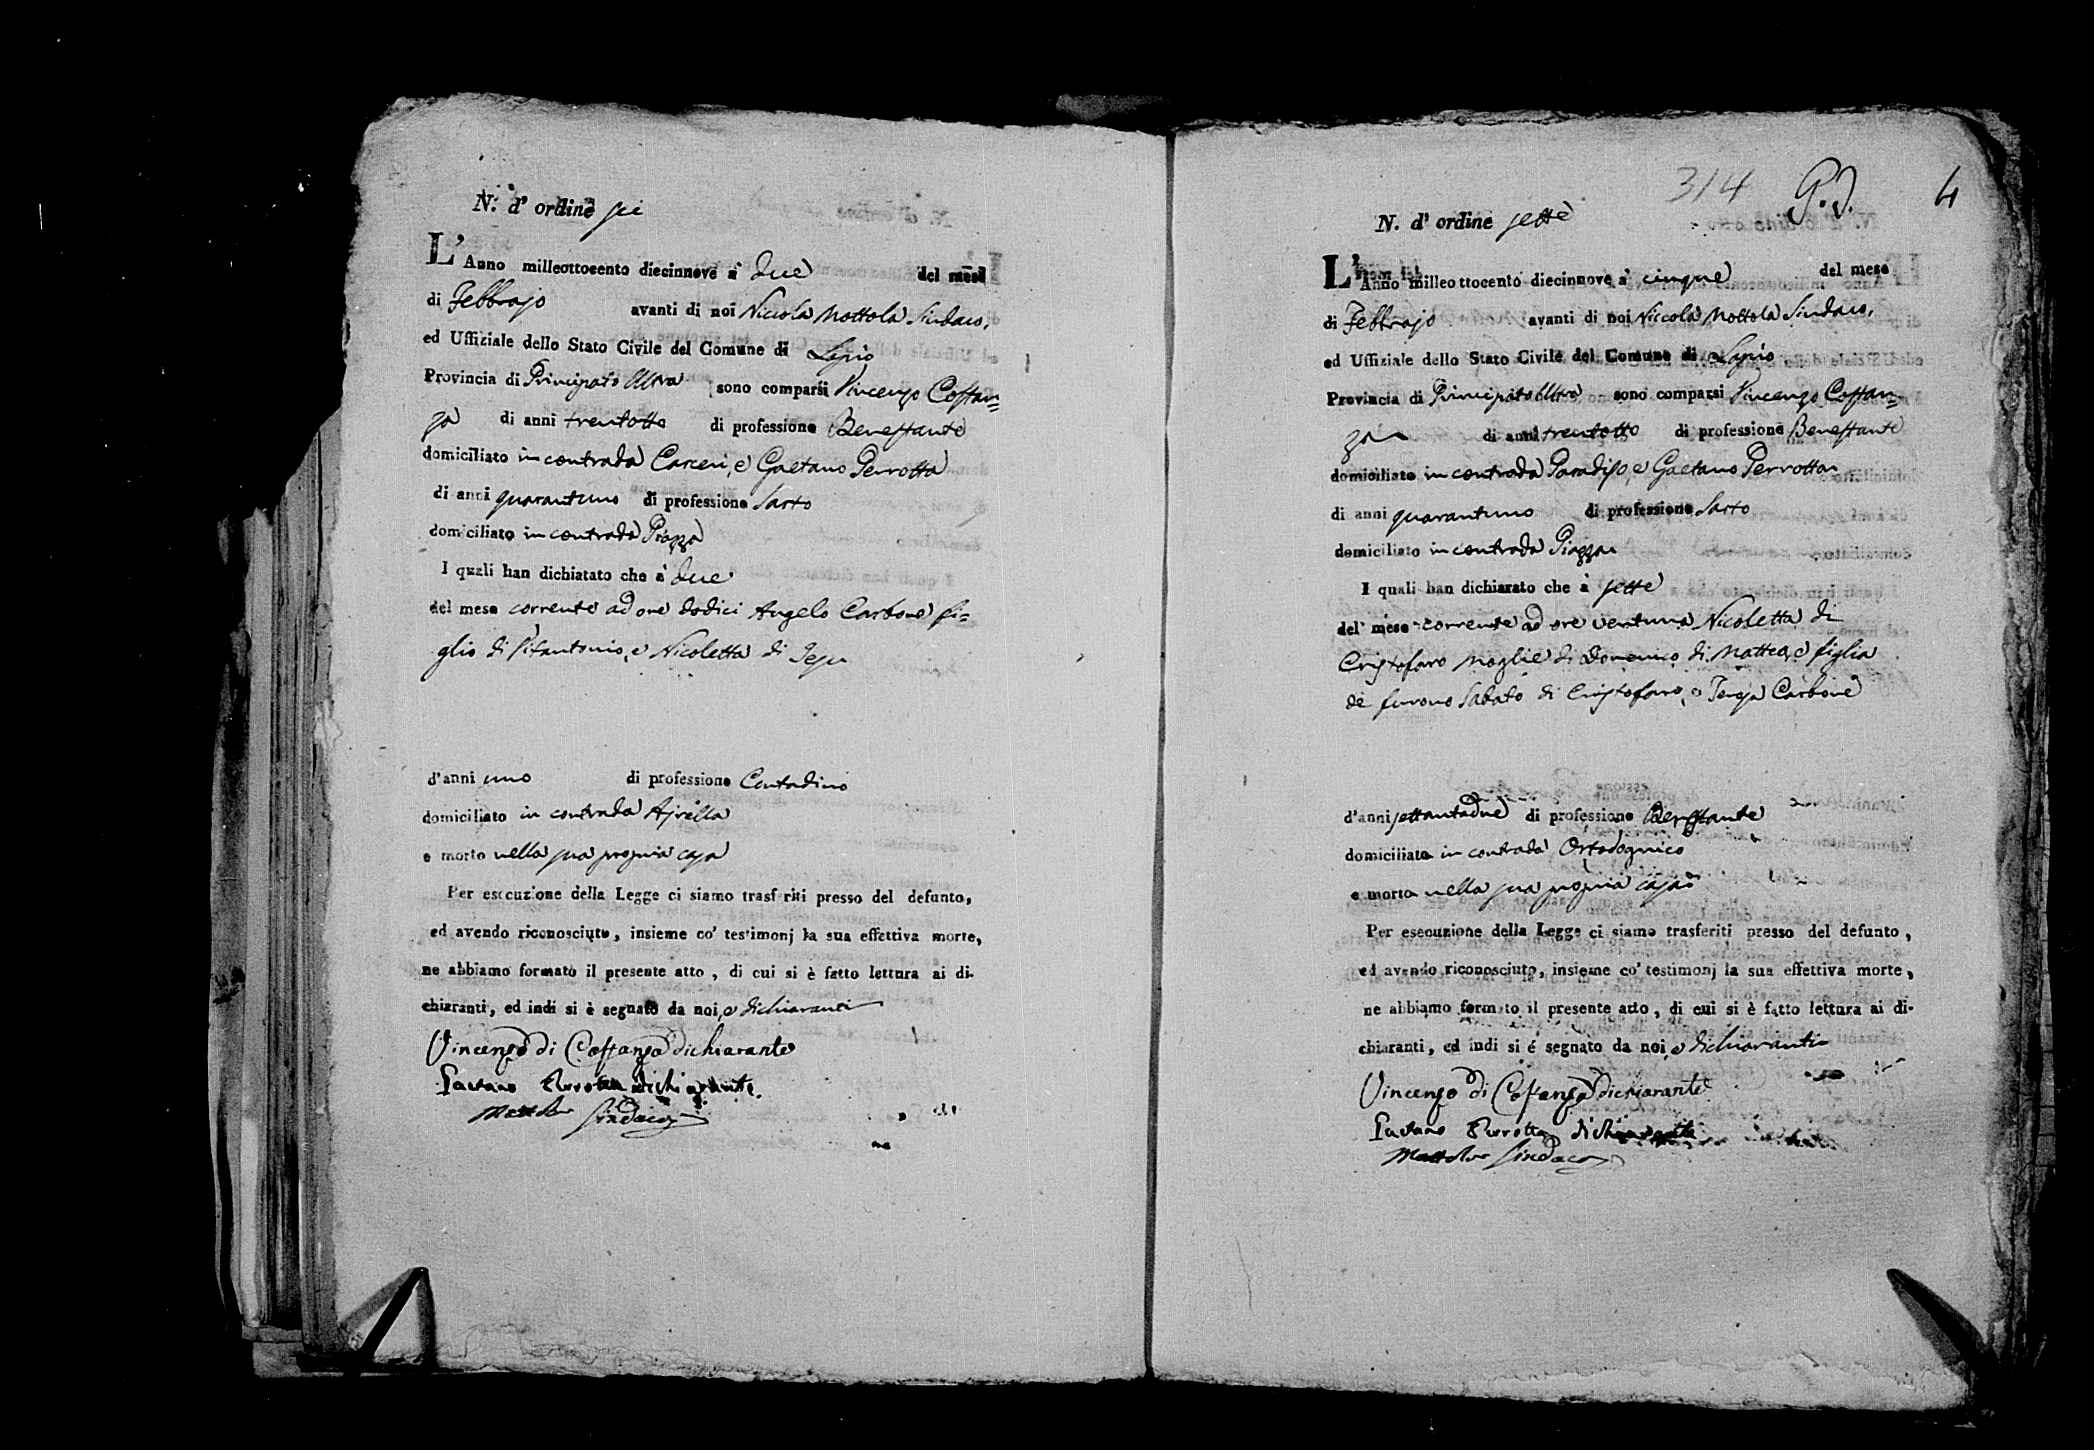 N. d' ordine sei
L' Anno milleottocento diecinnove à due del mese
di Febbrajo avanti di noi Niccola Mottola Sindaco,
ed Uffiziale dello Stato Civile del Comune di Lapio
Provincia di Principato Ultra sono comparsi Vincenzo Costan=
za di anni trentotto di professione Benestante
domiciliato in contrada Carceri, e Gaetano Perrotta
di anni quarantuno di professione Sarto
domiciliato in contrada Piazza
I quali han dichiatato che à due
del mese corrente ad ore dodici Angelo Carbone fi=
glio di Vitantonio, e Nicoletta di Jesu
d'anni uno di professione Contadino
domiciliato in contrada Ajrella
e morto nella sua propria casa
Per esecuzione della Legge ci siamo trasferiti presso del defunto,
ed avendo riconosciuto, insieme co' testimonj la sua effettiva morte,
ne abbiamo formato il presente atto, di cui si è fatto lettura ai di-
chiaranti, ed indi si è segnato da noi, e dichiaranti
Vincenzo di Costanza dichiarante
Gaetano Perrotta dichiarante.
Mottola Sindaco
314 4
N. d' ordine sette
L' Anno milleottocento diecinnove a' cinque del mese
di Febbrajo avanti di noi Niccola Mottola Sindaco,
ed Uffiziale dello Stato Civile del Comune di Lapio
Provincia di Principato Ultra sono comparsi Vincenzo Costan=
za di anni trentotto di professione Benestante
domiciliato in contrada Paradiso, e Gaetano Perrotta
di anni quarantuno di professione Sarto
domiciliato in contrada Piazza
I quali han dichiarato che à sette
del mese corrente ad ore ventuna Nicoletta di
Cristofaro moglie di Domenico di Matteo, e figlia
de furono Sabato di Cristofaro, e Teresa Carbone
d'anni settantadue di professione Benestante
domiciliata in contrada Ortodognico
e morta nella sua propria casa
Per esecuzione della Legge ci siamo trasferiti presso del defunto,
ed avendo riconosciuto, insieme co' testimonj la sua effettiva morte,
ne abbiamo formato il presente atto, di cui si è fatto lettura ai di-
chiaranti, ed indi si é segnato da noi, e dichiaranti
Vincenzo di Costanza dichiarante
Gaetano Perrotta dichiarante
Mottola Sindaco